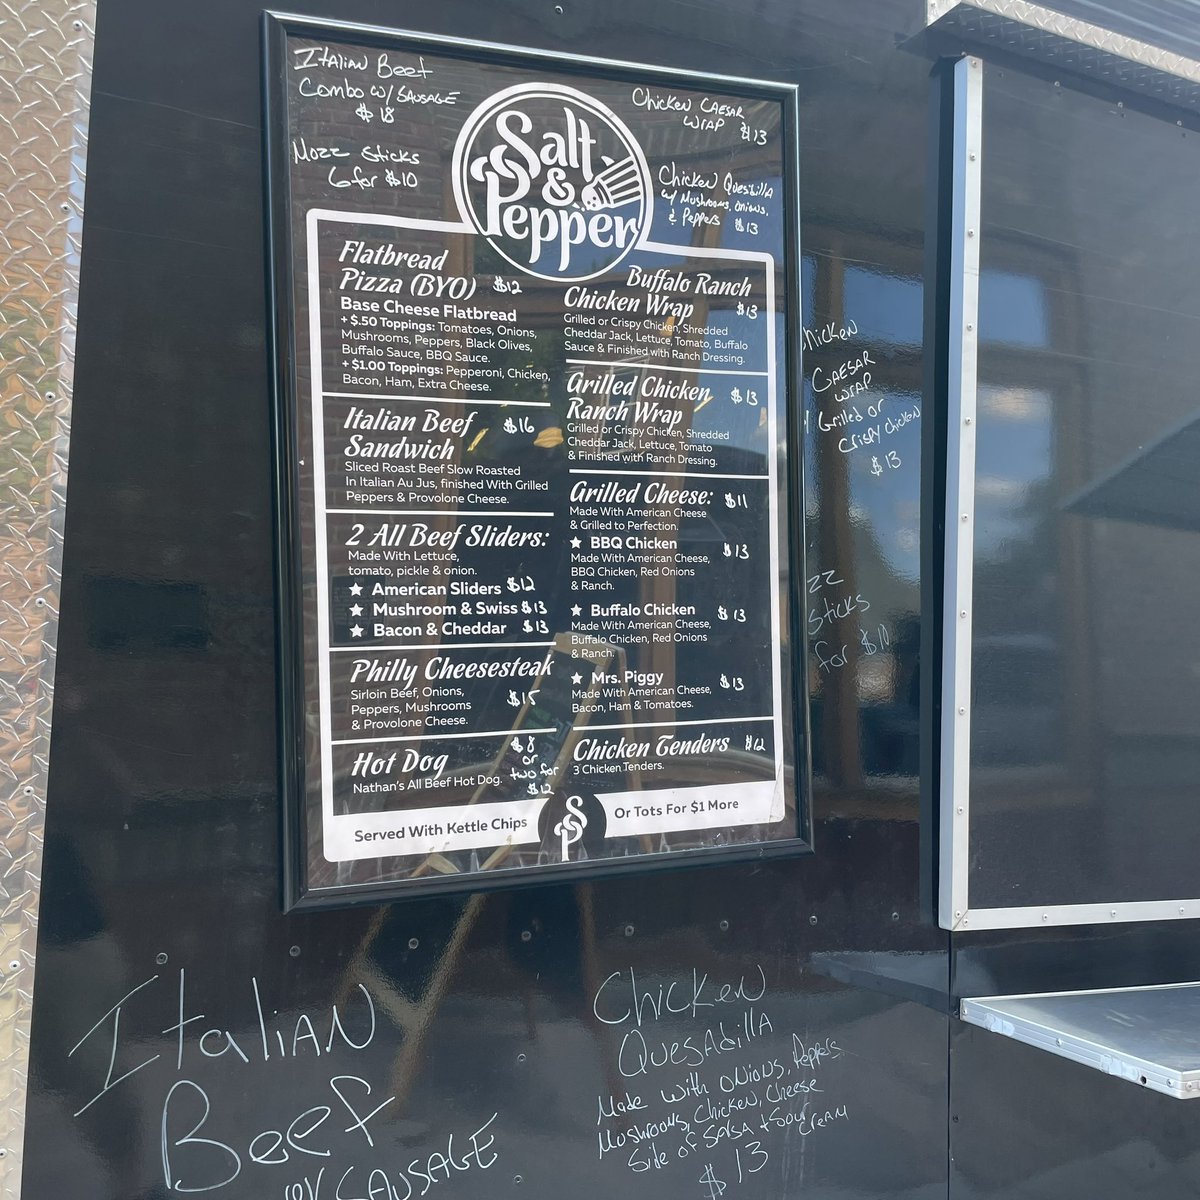 Italian Beef
Combo w/ Sausage
$18
Mozz Sticks
6 for $10
Salt
&
Pepper
Chicken Caesar
Wrap $13
Chicken Quesbilla
w/ Mushrooms, Onions,
& Peppers $13
Flatbread
Pizza (BYO) $12
Base Cheese Flatbread
+ $.50 Toppings: Tomatoes, Onions,
Mushrooms, Peppers, Black Olives,
Buffalo Sauce, BBQ Sauce.
+ $1.00 Toppings: Pepperoni, Chicken,
Bacon, Ham, Extra Cheese.
Italian Beef $16
Sandwich
Sliced Roast Beef Slow Roasted
In Italian Au Jus, finished With Grilled
Peppers & Provolone Cheese.
2 All Beef Sliders:
Made With Lettuce,
tomato, pickle & onion.
★ American Sliders $12
★ Mushroom & Swiss $13
★ Bacon & Cheddar $13
Philly Cheesesteak
Sirloin Beef, Onions,
Peppers, Mushrooms $15
& Provolone Cheese.
Hot Dog
Nathan's All Beef Hot Dog.
$8
or
two for
$12
Buffalo Ranch
Chicken Wrap $13
Grilled or Crispy Chicken, Shredded
Cheddar Jack, Lettuce, Tomato, Buffalo
Sauce & Finished with Ranch Dressing.
Grilled Chicken $13
Ranch Wrap
Grilled or Crispy Chicken, Shredded
Cheddar Jack, Lettuce, Tomato
& Finished with Ranch Dressing.
Grilled Cheese: $11
Made With American Cheese
& Grilled to Perfection.
★ BBQ Chicken $13
Made With American Cheese,
BBQ Chicken, Red Onions
& Ranch.
★ Buffalo Chicken $13
Made With American Cheese,
Buffalo Chicken, Red Onions
& Ranch.
★ Mrs. Piggy $13
Made With American Cheese,
Bacon, Ham & Tomatoes.
Chicken Tenders $12
3 Chicken Tenders.
Served With Kettle Chips
SP
Or Tots For $1 More
hicken
Caesar
Wrap
w/ Grilled or
Crispy Chicken
$13
zz
Sticks
for $10
Italian
Beef
w/ Sausage
Chicken
Quesadilla
Made with Onions, Peppers
Mushrooms, Chicken, Cheese
Side of Salsa + Sour Cream
$13